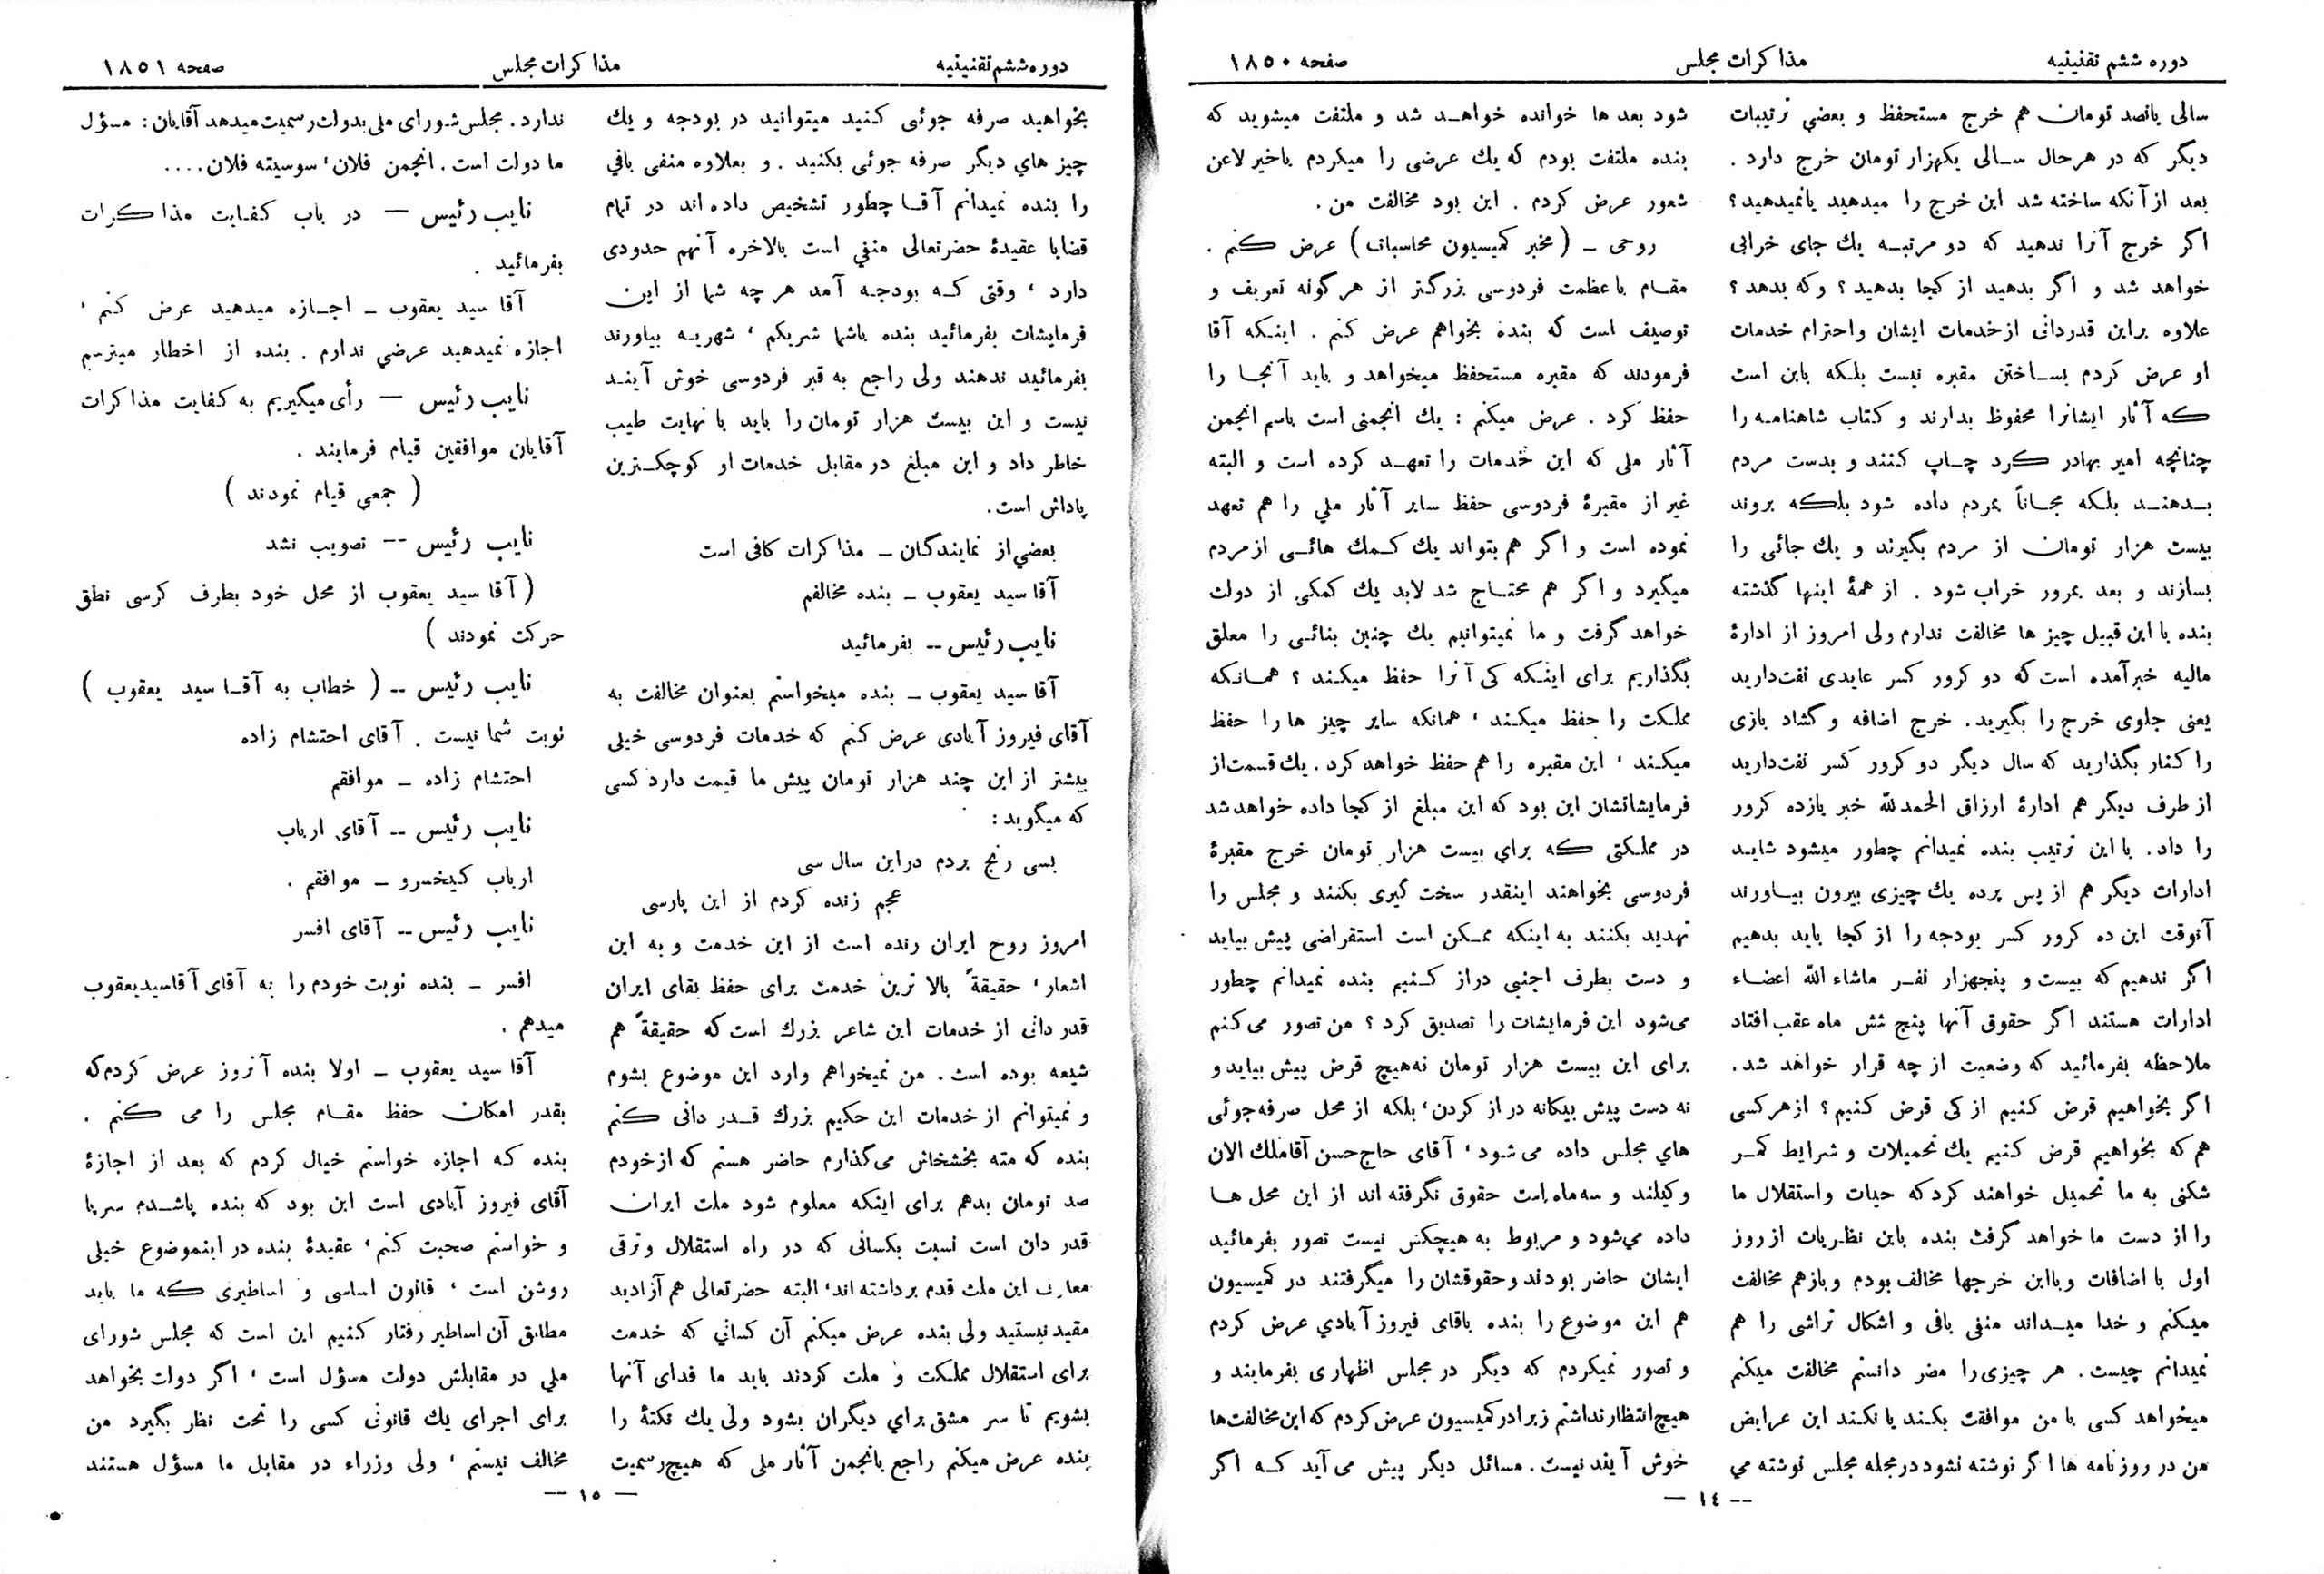 دوره ششم تقنینیه
مذاکرات مجلس
صفحه ۱۸۵۰
سالی پانصد تومان هم خرج مستحفظ و بعضی ترتیبات
دیگر که در هر حال سالی یکهزار تومان خرج دارد .
بعد از آنکه ساخته شد این خرج را میدهید یا نمیدهید؟
اگر خرج آنرا ندهید که دو مرتبه یك جای خرابی
خواهد شد و اگر بدهید از کجا بدهید ؟ و که بدهد ؟
علاوه براین قدردانی از خدمات ایشان و احترام خدمات
او عرض کردم بساختن مقبره نیست بلکه باین است
که آثار ایشانرا محفوظ بدارند و کتاب شاهنامه را
چنانچه امیر بهادر کرد چاپ کنند و بدست مردم
بدهند بلکه مجاناً بمردم داده شود بلکه بروند
بیست هزار تومان از مردم بگیرند و یك جائی را
بسازند و بعد بمرور خراب شود . از همهٔ اینها گذشته
بنده با این قبیل چیز ها مخالفت ندارم ولی امروز از ادارهٔ
مالیه خبر آمده است که دو کرور کسر عایدی نفت دارید
یعنی جلوی خرج را بگیرید. خرج اضافه و گشاد بازی
را کنار بگذارید که سال دیگر دو کرور کسر نفت دارید
از طرف دیگر هم ادارهٔ ارزاق الحمدلله خبر یازده کرور
را داد. با این ترتیب بنده نمیدانم چطور میشود شاید
ادارات دیگر هم از پس پرده یك چیزی بیرون بیاورند
آنوقت این ده کرور کسر بودجه را از کجا باید بدهیم
اگر ندهیم که بیست و پنجهزار نفر ماشاء الله اعضاء
ادارات هستند اگر حقوق آنها پنج شش ماه عقب افتاد
ملاحظه بفرمائید که وضعیت از چه قرار خواهد شد.
اگر بخواهیم قرض کنیم از کی قرض کنیم؟ از هر کسی
هم که بخواهیم قرض کنیم یك تحمیلات و شرایط کمر
شکنی به ما تحمیل خواهند کرد که حیات و استقلال ما
را از دست ما خواهد گرفت بنده باین نظریات از روز
اول با اضافات و با این خرجها مخالف بودم و بازهم مخالفت
میکنم و خدا میداند منفی بافی و اشکال تراشی را هم
نمیدانم چیست . هر چیزی را مضر دانستم مخالفت میکنم
میخواهد کسی با من موافقت بکند یا نکند این عرایض
من در روزنامه ها اگر نوشته نشود در مجله مجلس نوشته می
شود بعد ها خوانده خواهد شد و ملتفت میشوید که
بنده ملتفت بودم که یك عرضی را میکردم یاخیر لاعن
شعور عرض کردم . این بود مخالفت من .
روحی – ( مخبر کمیسیون محاسبات ) عرض کنم .
مقام با عظمت فردوسی بزرگتر از هر گونه تعریف و
توصیف است که بنده بخواهم عرض کنم . اینکه آقا
فرمودند که مقبره مستحفظ میخواهد و باید آنجا را
حفظ کرد . عرض میکنم : یك انجمنی است باسم انجمن
آثار ملی که این خدمات را تعهد کرده است و البته
غیر از مقبرهٔ فردوسی حفظ سایر آثار ملی را هم تعهد
نموده است و اگر هم بتواند یك کمك هائی از مردم
میگیرد و اگر هم محتاج شد لابد یك کمکی از دولت
خواهد گرفت و ما نمیتوانیم یك چنین بنائی را معلق
بگذاریم برای اینکه کی آنرا حفظ میکند ؟ همانکه
مملکت را حفظ میکند ، همانکه سایر چیز ها را حفظ
میکند ، این مقبره را هم حفظ خواهد کرد . یك قسمت از
فرمایشاتشان این بود که این مبلغ از کجا داده خواهد شد
در مملکتی که برای بیست هزار تومان خرج مقبرهٔ
فردوسی بخواهند اینقدر سخت گیری بکنند و مجلس را
تهدید بکنند به اینکه ممکن است استقراضی پیش بیاید
و دست بطرف اجنبی دراز کنیم بنده نمیدانم چطور
می‌شود این فرمایشات را تصدیق کرد ؟ من تصور می‌کنم
برای این بیست هزار تومان نه هیچ قرض پیش بیاید و
نه دست پیش بیگانه دراز کردن، بلکه از محل صرفه جوئی
های مجلس داده می شود ، آقای حاج حسن آقا ملك الان
وکیلند و سه ماه است حقوق نگرفته اند از این محل ها
داده می‌شود و مربوط به هیچکس نیست تصور بفرمائید
ایشان حاضر بودند و حقوقشان را میگرفتند در کمیسیون
هم این موضوع را بنده باقای فیروز آبادی عرض کردم
و تصور نمیکردم که دیگر در مجلس اظهاری بفرمایند و
هیچ انتظار نداشتم زیرا در کمیسیون عرض کردم که این مخالفت‌ها
خوش آیند نیست . مسائل دیگر پیش می آید که اگر
-- ۱٤ —
دوره ششم تقنینیه
مذاکرات مجلس
صفحه ۱۸۵۱
بخواهید صرفه جوئی کنید میتوانید در بودجه و یك
چیز های دیگر صرفه جوئی بکنید . و بعلاوه منفی بافی
را بنده نمیدانم آقا چطور تشخیص داده اند در تمام
قضایا عقیدهٔ حضرتعالی منفی است بالاخره آنهم حدودی
دارد ، وقتی که بودجه آمد هر چه شما از این
فرمایشات بفرمائید بنده باشما شریکم ، شهریه بیاورند
بفرمائید ندهند ولی راجع به قبر فردوسی خوش آیند
نیست و این بیست هزار تومان را باید با نهایت طیب
خاطر داد و این مبلغ در مقابل خدمات او کوچکترین
پاداش است.
بعضی از نمایندگان – مذاکرات کافی است
آقا سید یعقوب – بنده مخالفم
نایب رئیس -- بفرمائید
آقا سید یعقوب – بنده میخواستم بعنوان مخالفت به
آقای فیروز آبادی عرض کنم که خدمات فردوسی خیلی
بیشتر از این چند هزار تومان پیش ما قیمت دارد کسی
که میگوید:
بسی رنج بردم در این سال سی
عجم زنده کردم از این پارسی
امروز روح ایران زنده است از این خدمت و به این
اشعار ، حقیقةً بالا ترین خدمت برای حفظ بقای ایران
قدر دانی از خدمات این شاعر بزرك است که حقیقةً هم
شیعه بوده است . من نمیخواهم وارد این موضوع بشوم
و نمیتوانم از خدمات این حکیم بزرك قدر دانی کنم
بنده که مته بخشخاش می‌گذارم حاضر هستم که از خودم
صد تومان بدهم برای اینکه معلوم شود ملت ایران
قدر دان است نسبت بکسانی که در راه استقلال و ترقی
معارف این ملت قدم برداشته اند، البته حضرتعالی هم آزادید
مقید نیستید ولی بنده عرض میکنم آن کسانی که خدمت
برای استقلال مملکت و ملت کردند باید ما فدای آنها
بشویم تا سر مشق برای دیگران بشود ولی یك نکتهٔ را
بنده عرض میکنم راجع بانجمن آثار ملی که هیچ رسمیت
ندارد . مجلس شورای ملی بدولت رسمیت میدهد آقایان : مسؤل
ما دولت است . انجمن فلان، سوسیته فلان ....
نایب رئیس — در باب کفایت مذاکرات
بفرمائید .
آقا سید یعقوب – اجازه میدهید عرض کنم ،
اجازه نمیدهید عرضی ندارم . بنده از اخطار میترسم
نایب رئیس — رأی میگیریم به کفایت مذاکرات
آقایان موافقین قیام فرمایند .
( جمعی قیام نمودند )
نایب رئیس -- تصویب نشد
( آقا سید یعقوب از محل خود بطرف کرسی نطق
حرکت نمودند )
نایب رئیس -- ( خطاب به آقا سید یعقوب )
نوبت شما نیست . آقای احتشام زاده
احتشام زاده – موافقم
نایب رئیس -- آقای ارباب
ارباب کیخسرو – موافقم .
نایب رئیس -- آقای افسر
افسر – بنده نوبت خودم را به آقای آقاسید یعقوب
میدهم .
آقا سید یعقوب – اولا بنده آنروز عرض کردم که
بقدر امکان حفظ مقام مجلس را می کنم .
بنده که اجازه خواستم خیال کردم که بعد از اجازهٔ
آقای فیروز آبادی است این بود که بنده پاشدم سرپا
و خواستم صحبت کنم، عقیدهٔ بنده در اینموضوع خیلی
روشن است ، قانون اساسی و اساطیری که ما باید
مطابق آن اساطیر رفتار کنیم این است که مجلس شورای
ملی در مقابلش دولت مسؤل است ، اگر دولت بخواهد
برای اجرای یك قانونی کسی را تحت نظر بگیرد من
مخالف نیستم ، ولی وزراء در مقابل ما مسؤل هستند
— ۱۵ --